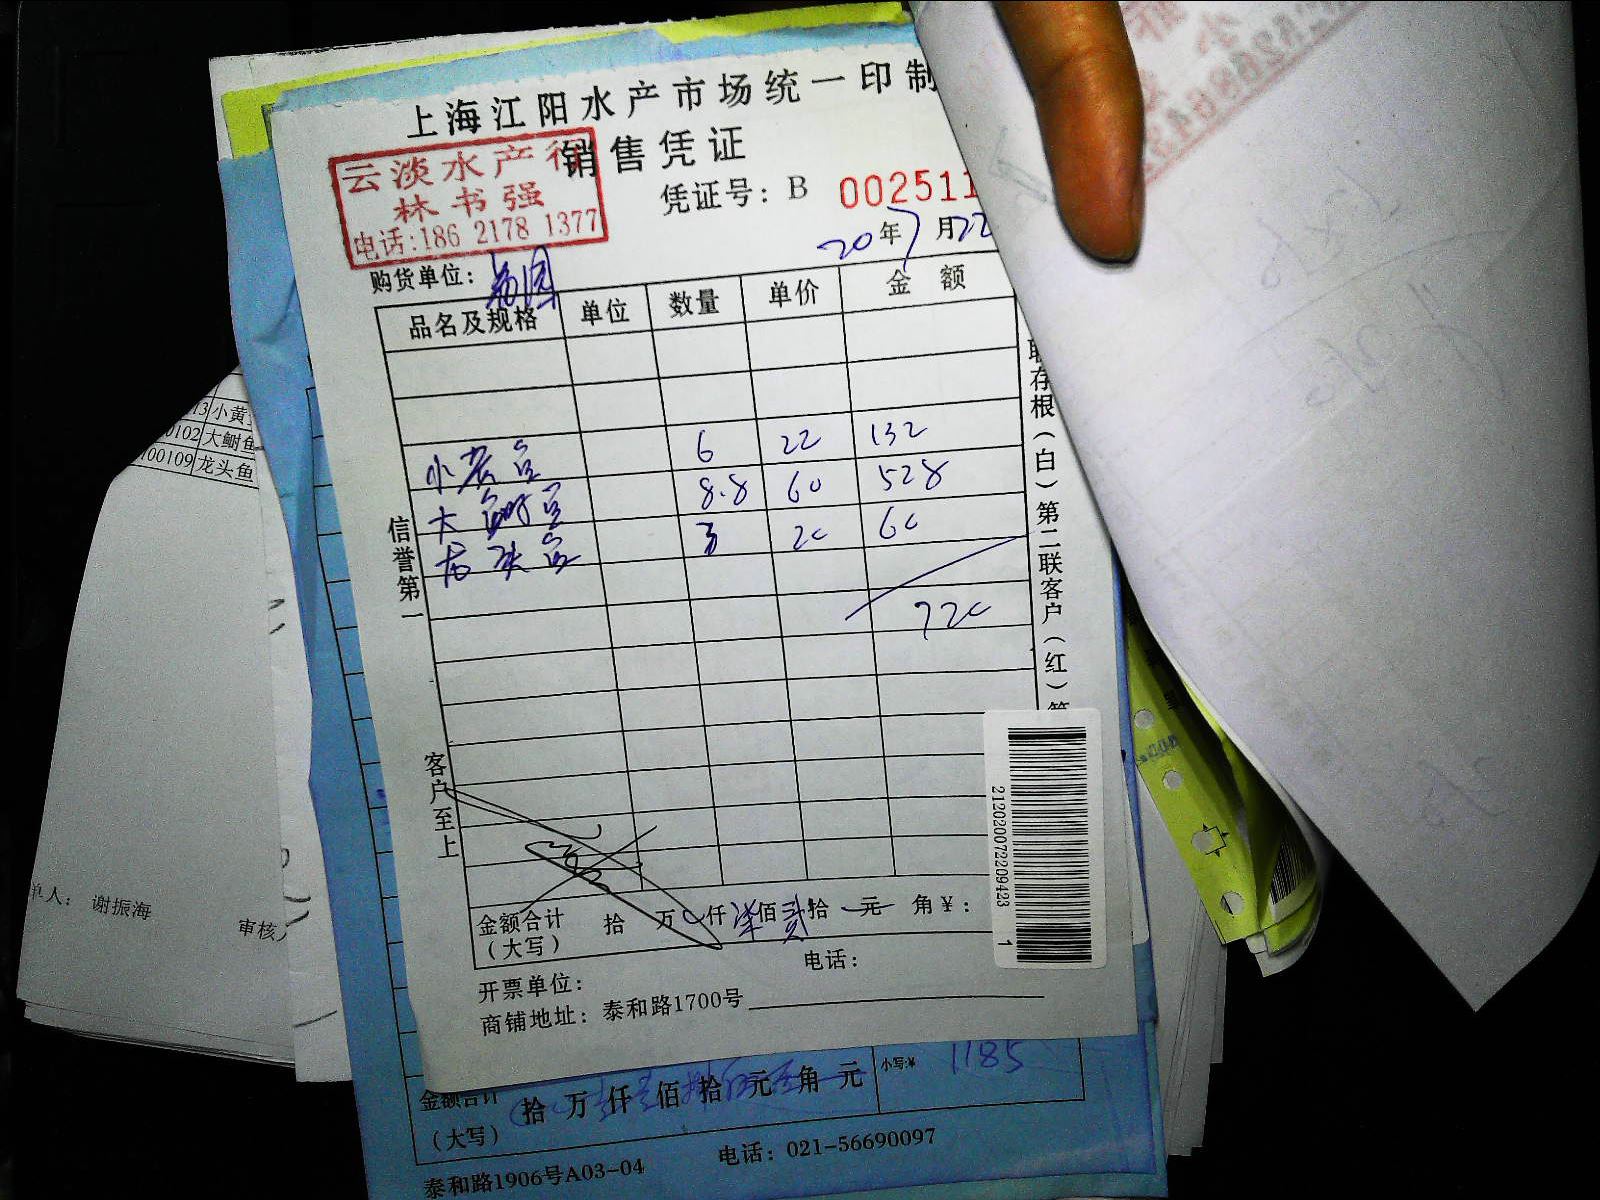 上海江阳水产市场统一印制
销售凭证
云淡水产行
林书强
电话:186 2178 1377
凭证号：B 002511
20年7月22
购货单位：
品名及规格 单位 数量 单价 金额
小黄鱼 6 22 132
大鲥鱼 8.8 60 528
龙头鱼 3 20 60
720
信誉第一
客户至上
联存根（白）第二联客户（红）第
金额合计（大写） 拾 万 仟柒佰贰拾 元 角¥：
开票单位：
电话：
商铺地址：泰和路1700号
2120200722209423 1
13 小黄
0102 大鲥鱼
100109 龙头鱼
单人： 谢振海
审核人
金额合计（大写） 拾 万 仟 佰 拾 元 角 元
小写:¥ 1185
泰和路1906号A03-04
电话：021-56690097